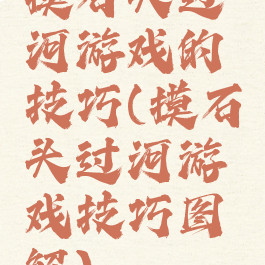 摸石头过
河游戏的
技巧(摸石
头过河游
戏技巧图
解)